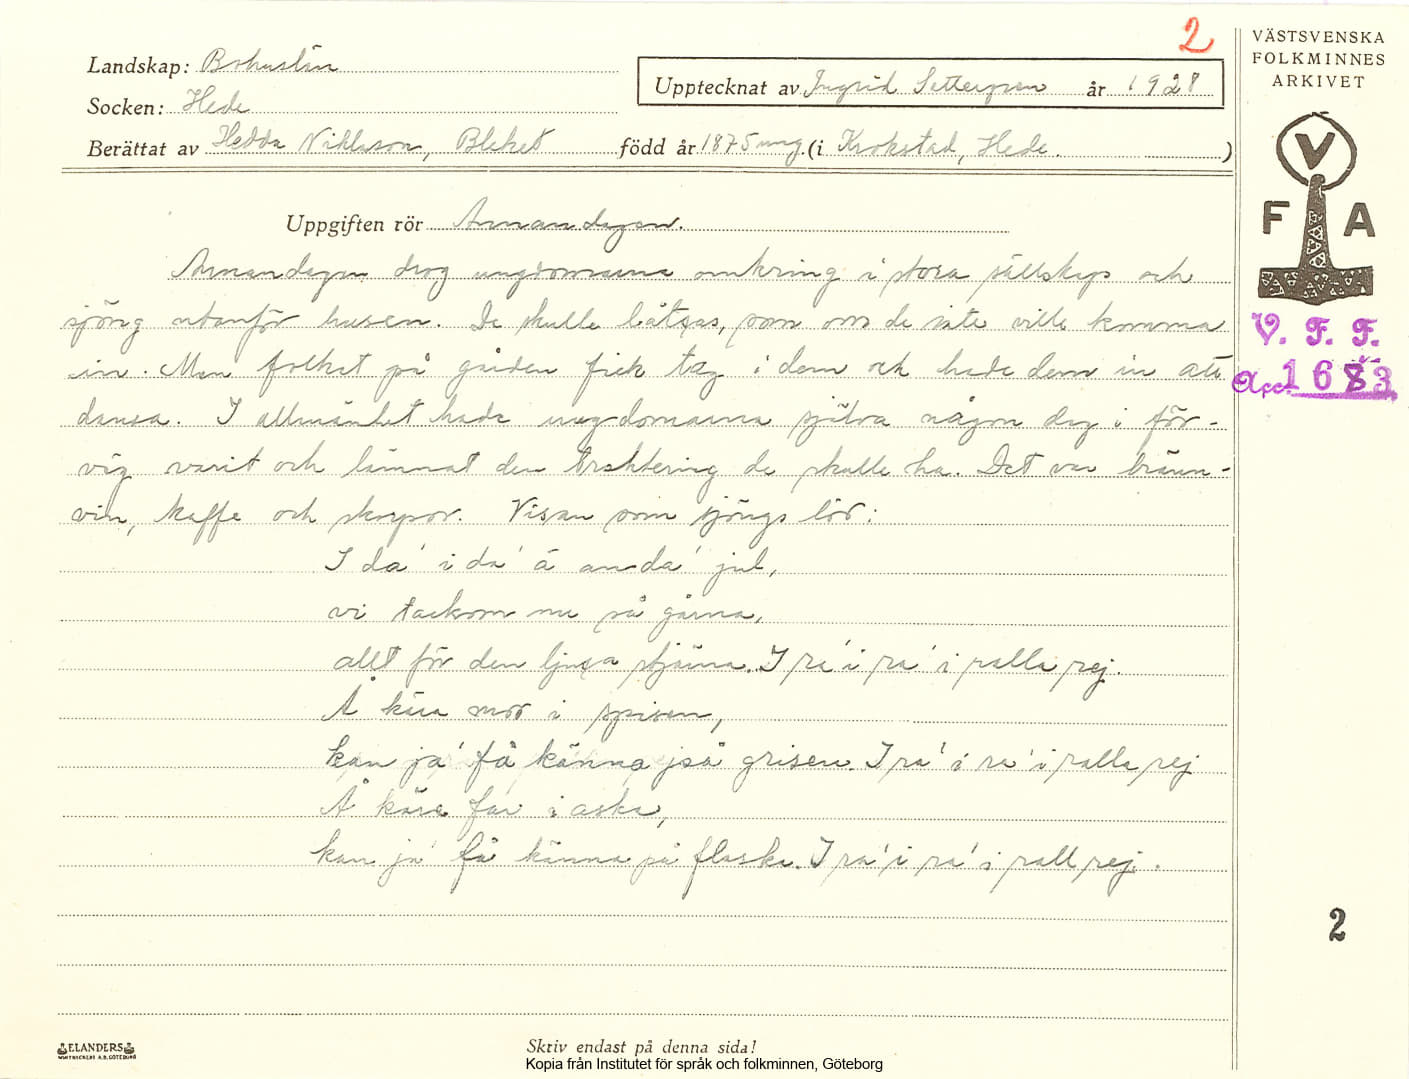 2
VÄSTSVENSKA
FOLKMINNES
ARKIVET
Landskap: Bohuslän
Upptecknat av Ingrid Settergren år 1928
Socken: Hede
Berättat av Hedda Niklasson, Bleket född år 1875 ung. (i Krokstad, Hede.)
V
F A
V. F. F.
Acc. 1683
Uppgiften rör Annandagen.
Annandagen drog ungdomarna omkring i stora sällskap och
sjöng utanför husen. De skulle låtsas, som om de inte ville komma
in. Men folket på gården fick tag i dem och hade dem in att
dansa. I allmänhet hade ungdomarna själva någon dag i för-
väg varit och lämnat den traktering de skulle ha. Det var bränn-
vin, kaffe och skorpor. Visan som sjöngs löd:
I da' i da' å anda' jul,
vi tackom nu så gärna,
allt för den ljusa stjärna. I ra' i ra' i ralla rej.
Å kära mor i spisen,
kan ja' få känna på grisen. I ra' i ra' i ralla rej
Å käre far i aska,
kan ja' få känna på flaska. I ra' i ra' i rall rej.
2
ELANDERS
Skriv endast på denna sida!
Kopia från Institutet för språk och folkminnen, Göteborg